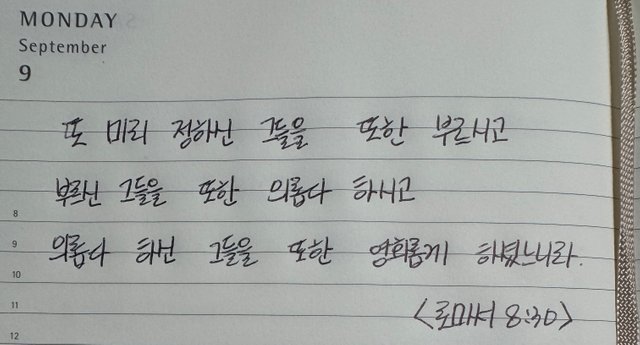 MONDAY
September
9
또 미리 정하신 그들을 또한 부르시고
부르신 그들을 또한 의롭다 하시고
8
9 의롭다 하신 그들을 또한 영화롭게 하셨느니라.
10
11 <로마서 8:30>
12